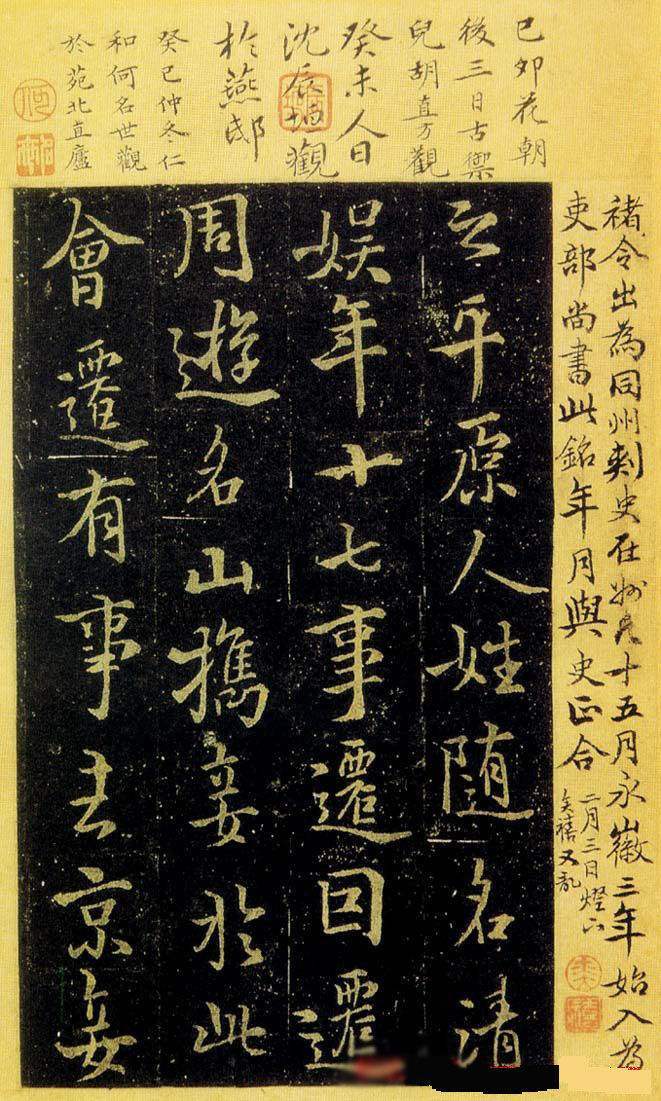 己卯花朝
後三日古禦
兒胡直方觀
癸未人日
沈辰垣觀
於燕邸
癸巳仲冬仁
和何名世觀
於苑北直廬
褚令出為同州刺史在州凡十五月永徽三年始入為
吏部尚書此銘年月與史正合
二月三日燈下
禧又記
之平原人姓随名清
娱年十七事遷因遷
周遊名山攜妾於此
會遷有事去京妾